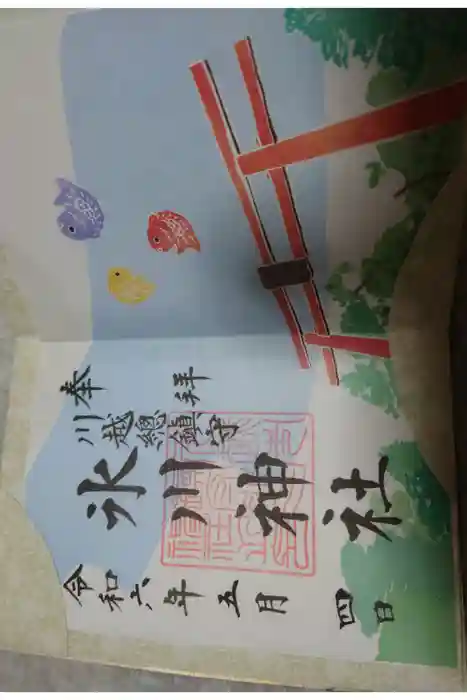 奉拝
川越總鎮守
氷川神社
令和六年五月四日